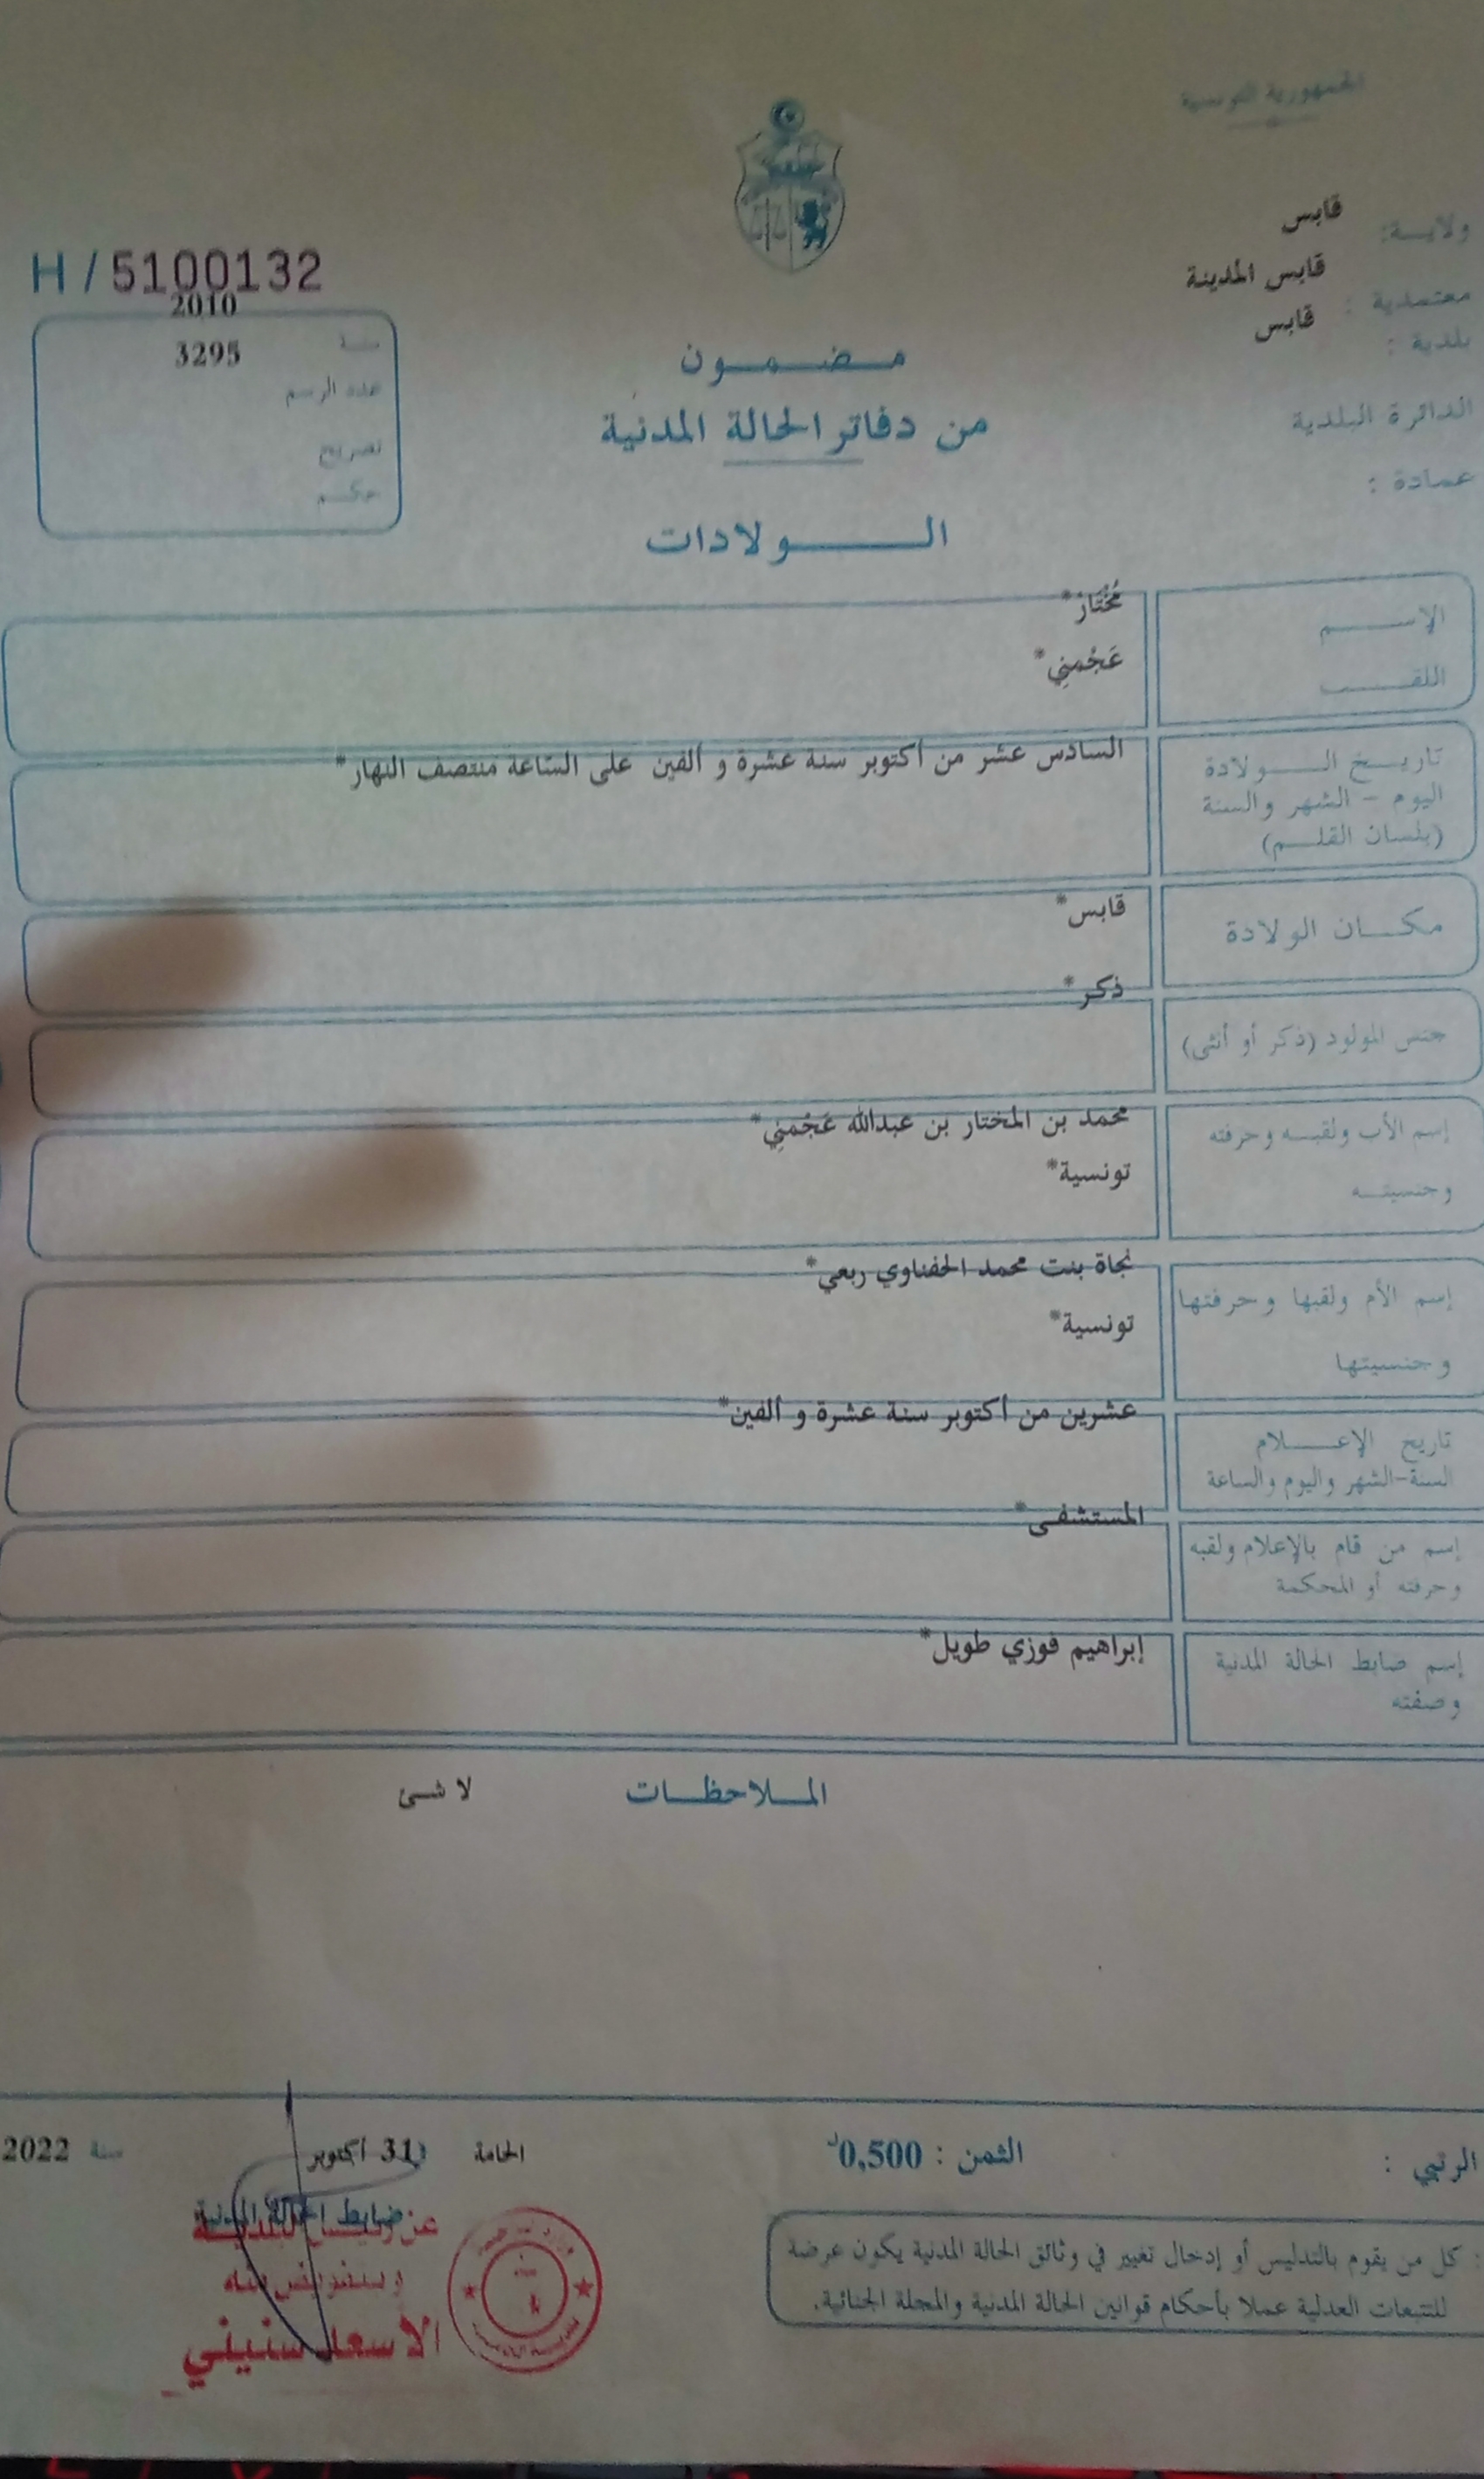 الجمهورية التونسية
ولايـــة: قابس
معتمدية : قابس المدينة
بلدية : قابس
الدائرة البلدية
عمادة :
H / 5100132
2010
سنة 3295
عدد الرسم
تصريح
حكم
مضمون
من دفاتر الحالة المدنية
الولادات
الإسم مُخْتَارْ*
اللقب عَجْمِنِي*
تاريخ الولادة السادس عشر من أكتوبر سنة عشرة و ألفين على السّاعة منتصف النهار*
اليوم - الشهر والسنة
(بلسان القلم)
مكان الولادة قابس*
ذكر*
جنس المولود (ذكر أو أنثى)
إسم الأب ولقبه وحرفته محمد بن المختار بن عبدالله عَجْمِنِي*
وجنسيته تونسية*
نجاة بنت محمد الحفناوي ربعي*
إسم الأم ولقبها وحرفتها
تونسية*
وجنسيتها
عشرين من أكتوبر سنة عشرة و ألفين*
تاريخ الإعلام
السنة-الشهر واليوم والساعة
المستشفى*
إسم من قام بالإعلام ولقبه
وحرفته أو المحكمة
إبراهيم فوزي طويل*
إسم ضابط الحالة المدنية
وصفته
الملاحظات لا شئ
الثمن : 0,500د
الحامة 31 أكتوبر سنة 2022
ضابط الحالة المدنية
عن رئيس البلدية
وبتفويض منه
الأسعد سنيني
: كل من يقوم بالتدليس أو إدخال تغيير في وثائق الحالة المدنية يكون عرضة
للتتبعات العدلية عملا بأحكام قوانين الحالة المدنية والمجلة الجنائية.